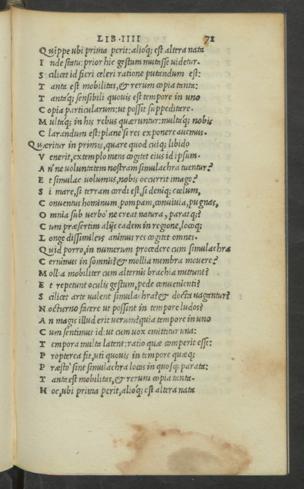 LIB·IIII 71
Q uippe ubi prima perit: alioq; est altera nata
I nde statu: prior hic gestum mutasse uidetur.
S cilicet id fieri celeri ratione putandum est:
T anta est mobilitas, & rerum copia tanta:
T antaq; sensibili quouis est tempore in uno
C opia particularum: ut possit suppeditare.
M ultaq; in his rebus quæruntur: multaq; nobis
C larandum est: plane si res exponere auemus.
Quæritur in primis, quare quod cuiq; libido
V enerit, extemplo mens cogitet eius id ipsum.
A n ne uoluntatem nostram simulachra tuentur?
E t simulac uolumus, nobis occurrit imago?
S i mare, si terram cordi est, si deniq; cœlum,
C onuentus hominum, pompam, conuiuia, pugnas,
O mnia sub uerbo ne creat natura, paratq;?
C um præsertim alijs eadem in regione, locoq;
L onge dissimileis animus res cogitet omneis.
Q uid porro, in numerum procedere cum simulachra
C ernimus in somnis? & mollia membra mouere?
M ollia mobiliter cum alternis brachia mutunt?
E t repetunt oculis gestum, pede conuenienti?
S cilicet arte ualent simulachra? & docta uagantur?
N octurno facere ut possint in tempore ludos?
A n magis illud erit uerum? quia tempore in uno
C um sentimus id: ut cum uox emittitur una:
T empora multa latent: ratio quæ comperit esse:
P ropterea fit, uti quouis in tempore quæq;
P ræsto sint simulachra locis in quosq; parata:
T anta est mobilitas, & rerum copia tanta.
H oc, ubi prima perit, alioq; est altera nata